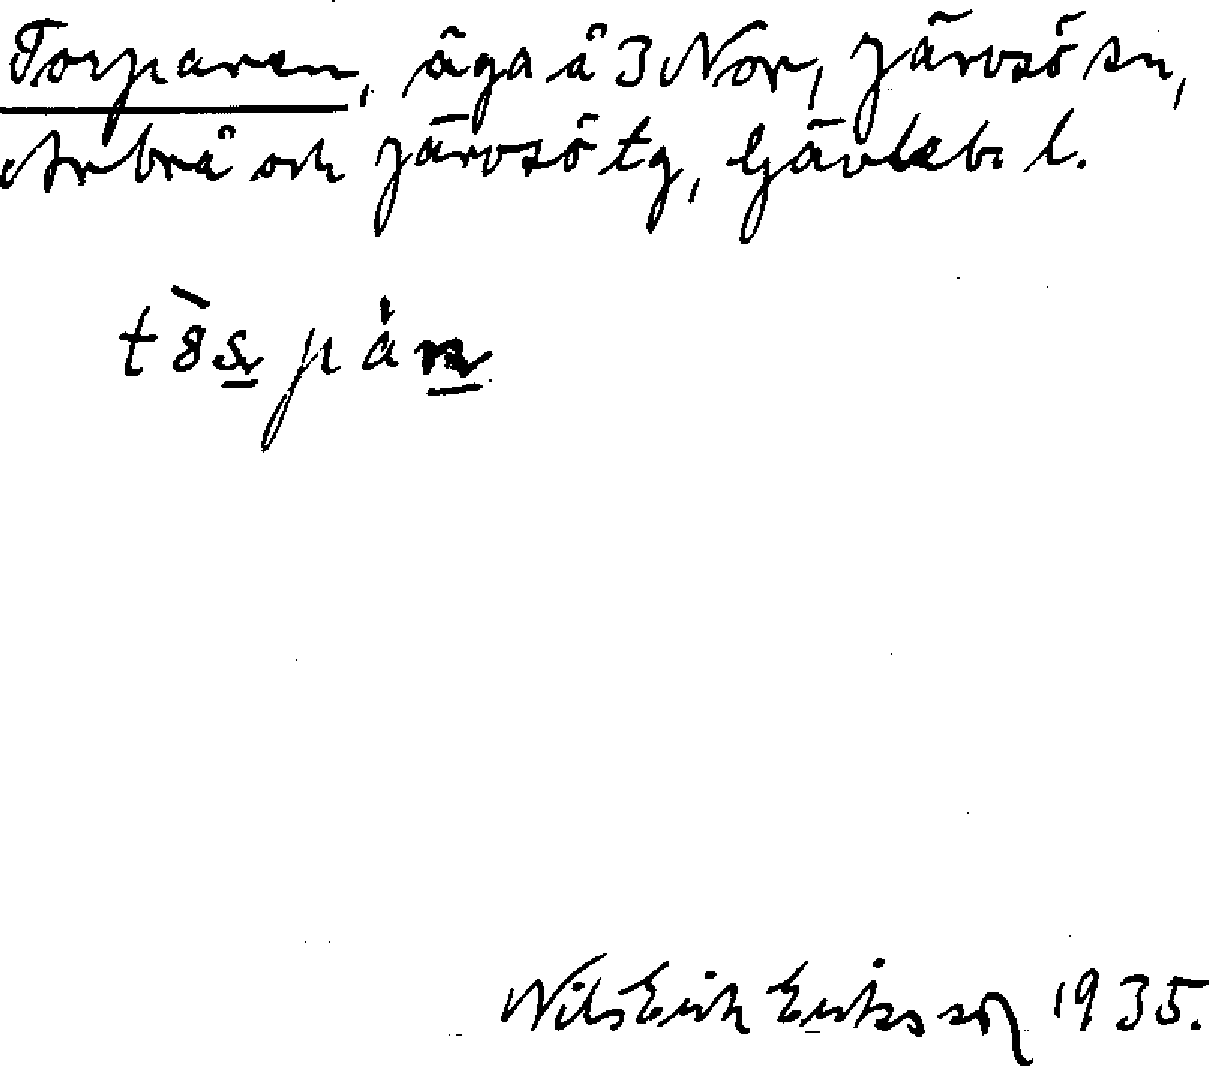 Torparen, äga å 3 Nor, Järvsö sn,
Arbrå och Järvsö tg, Gävleb. l.
Nils Erik Eriksson 1935.